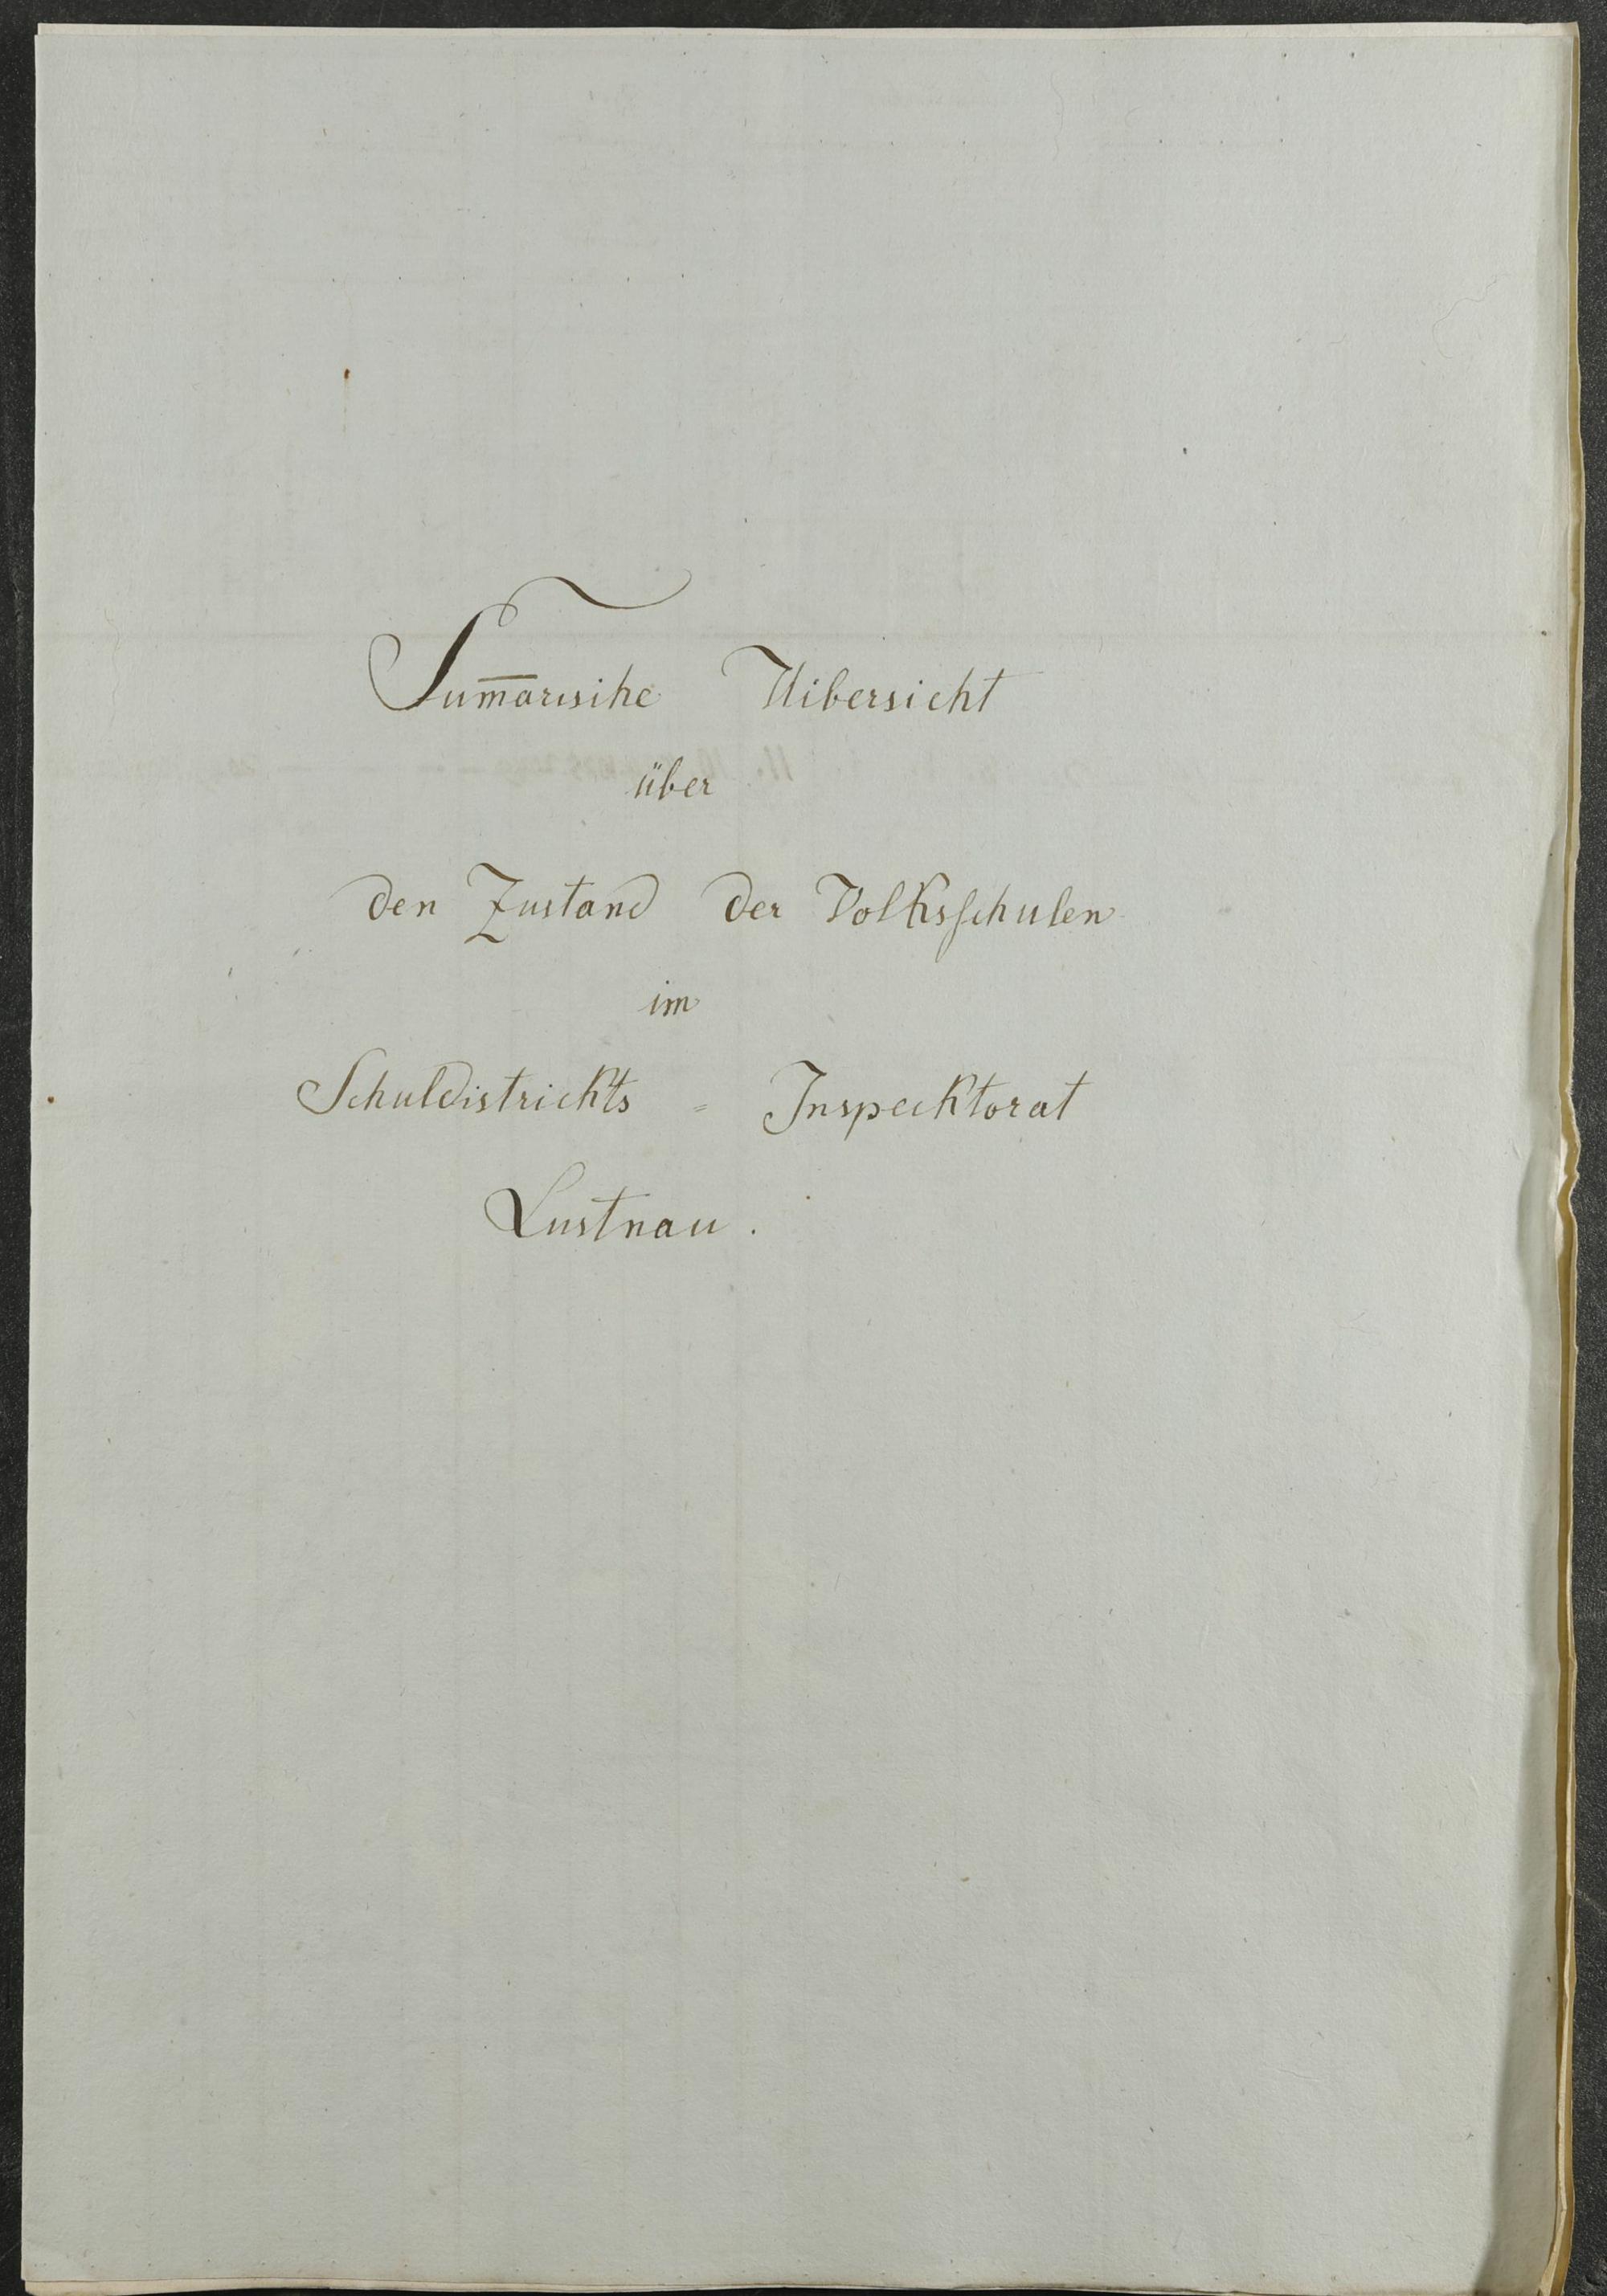 Sum̅arische Uibersicht
über
den Zustand der Volksschulen
im
Schuldistrickts = Inspecktorat
Lustnau.